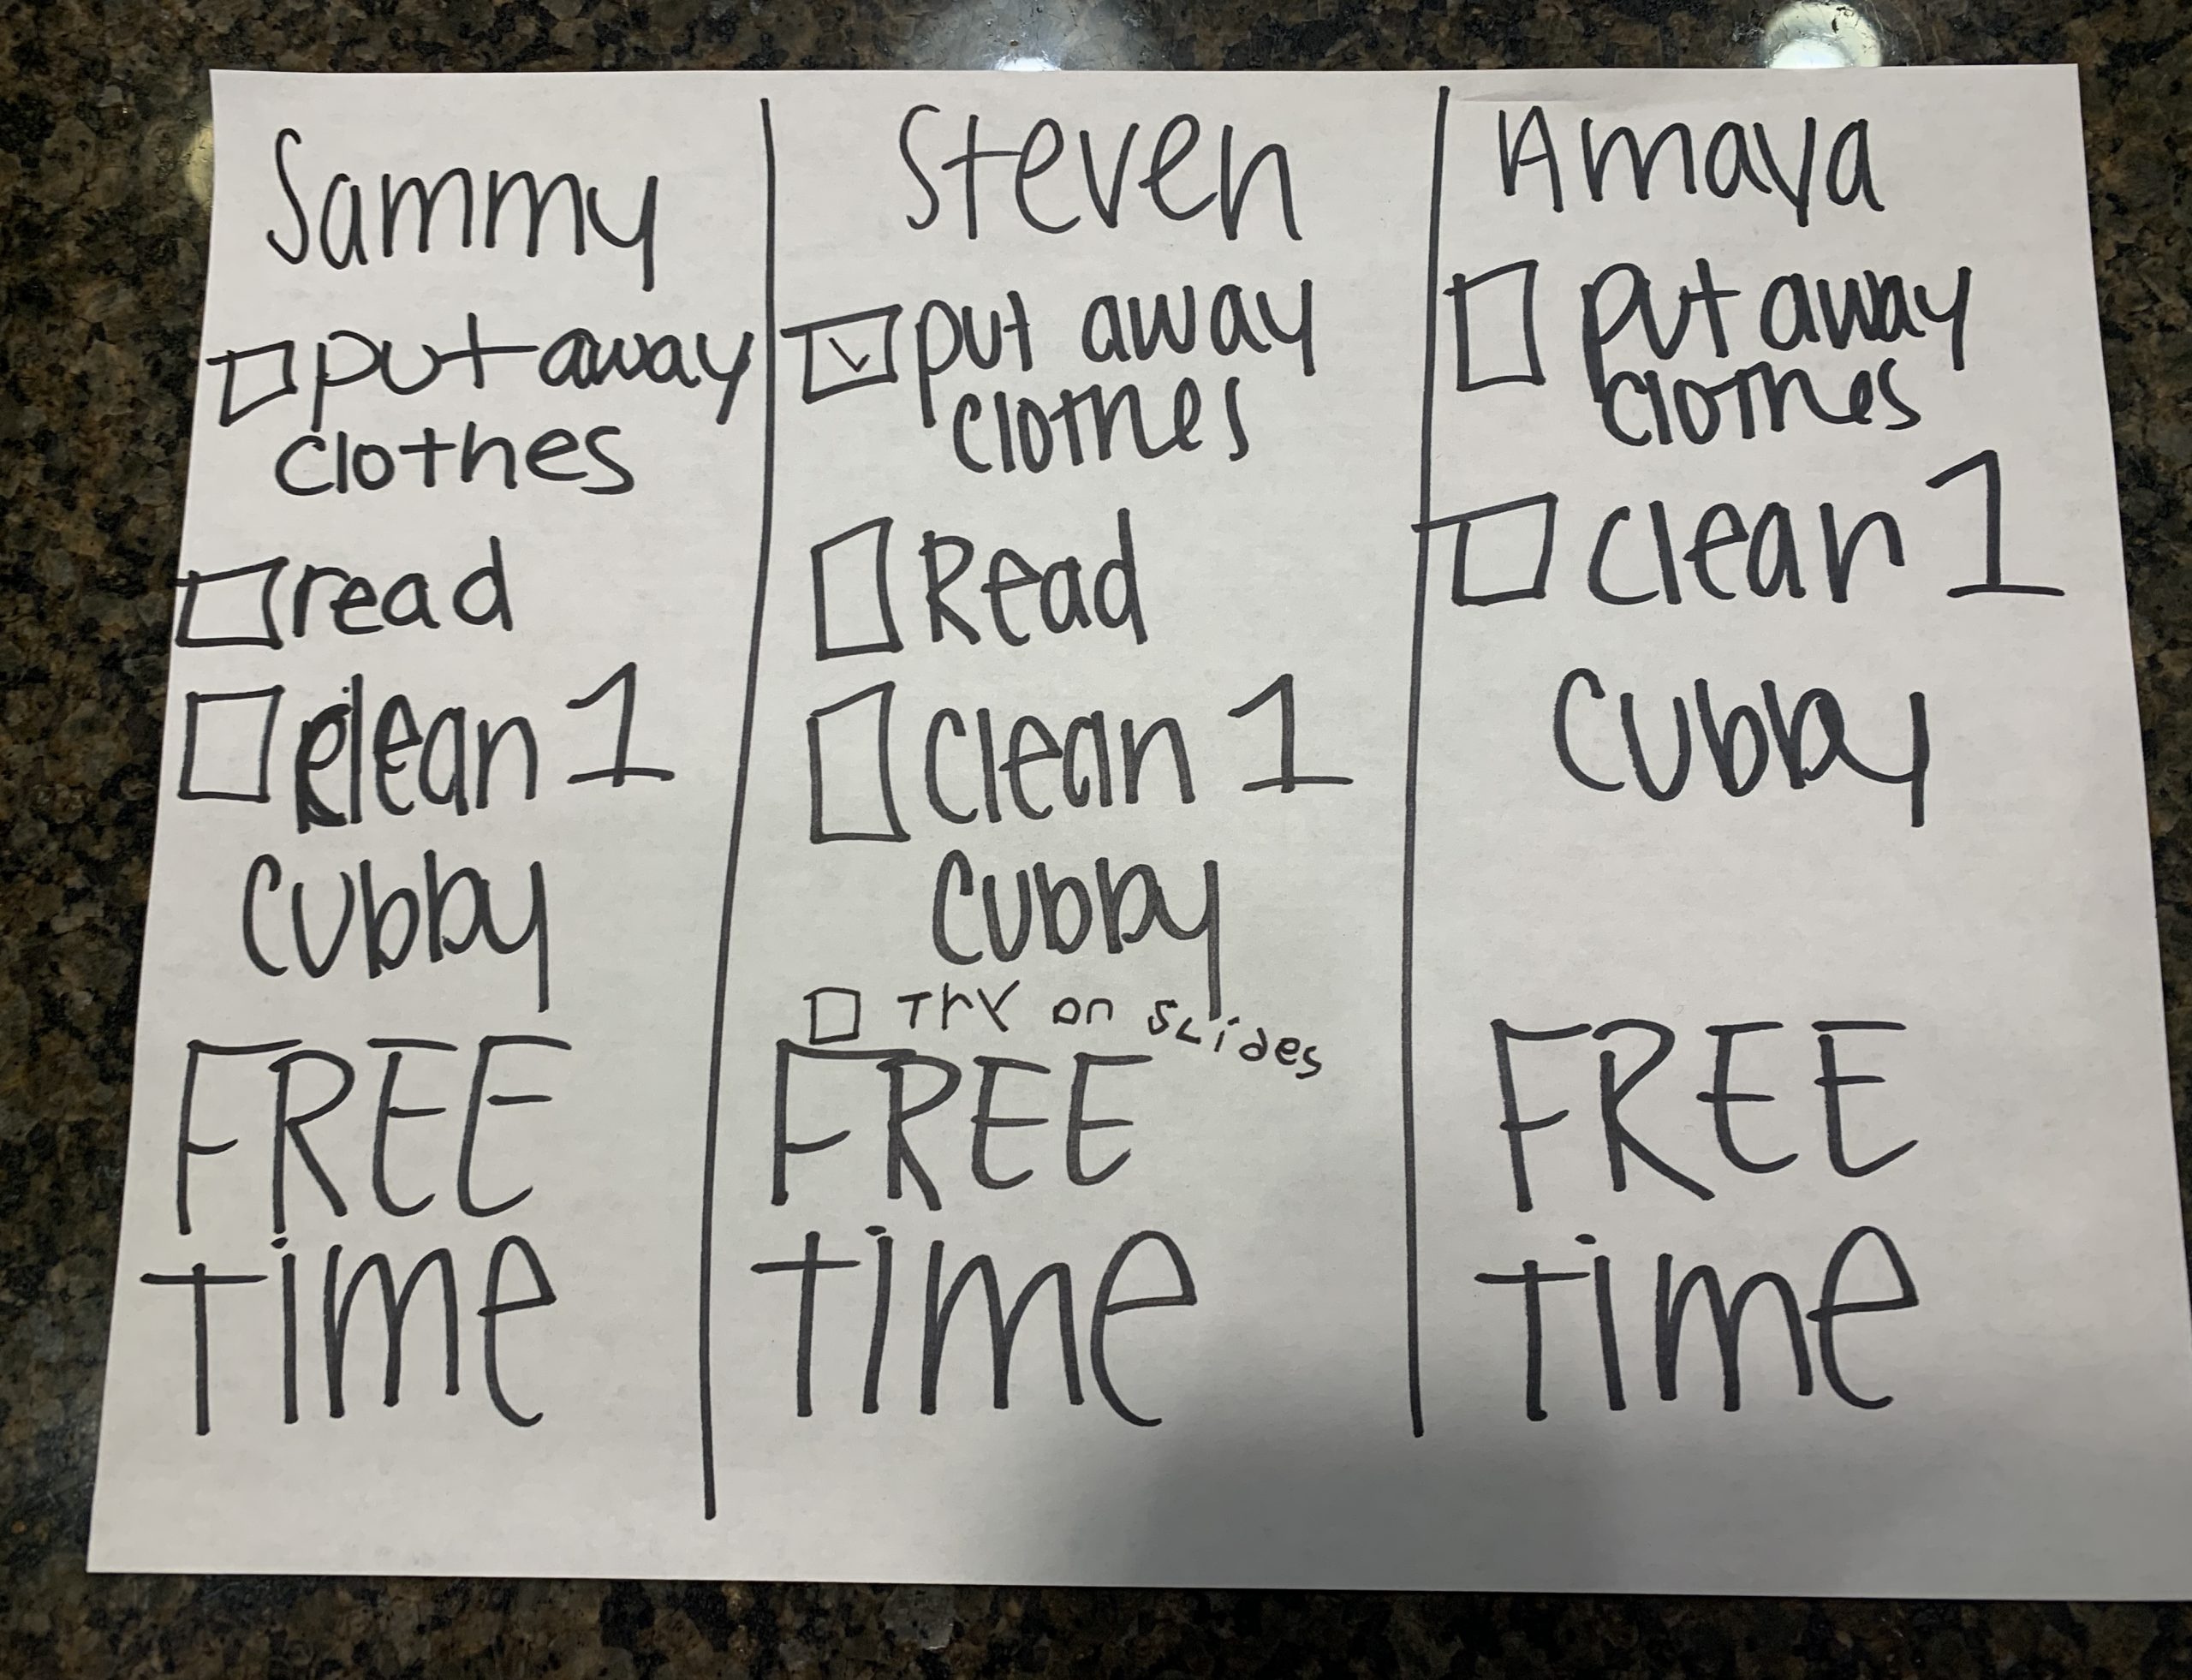 Sammy
put away
clothes
read
clean 1
cubby
FREE
time
Steven
put away
clothes
Read
clean 1
cubby
Try on slides
FREE
time
Amaya
put away
clothes
clean 1
cubby
FREE
time